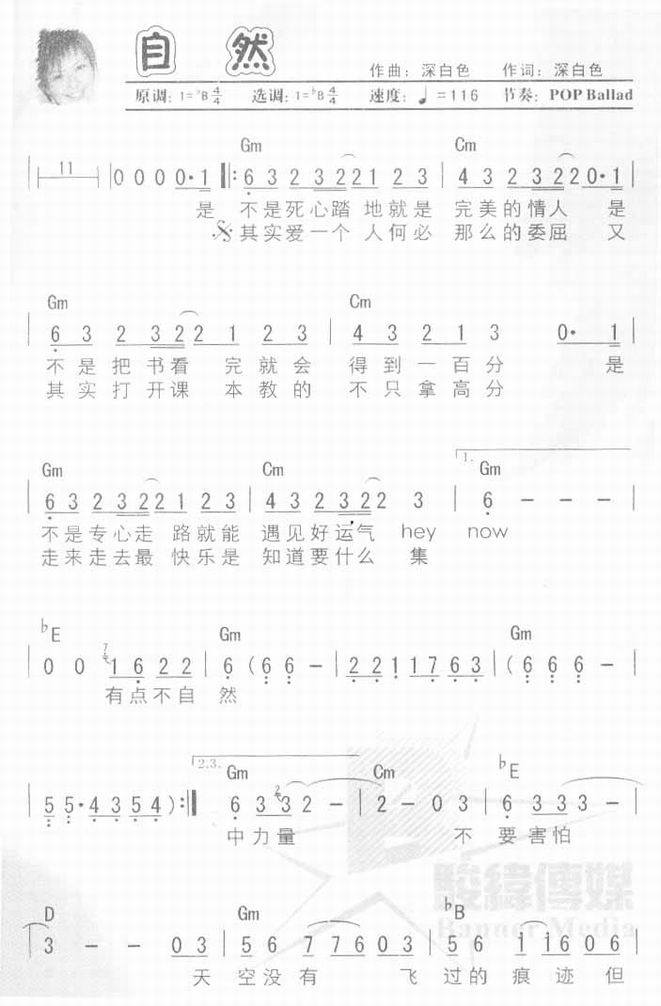 自 然
作曲: 深白色 作词: 深白色
原调: 1=♭B 4/4 选调: 1=♭B 4/4 速度: ♩=116 节奏: POP Ballad
Gm Cm
11 | 0 0 0 0 0· 1 ‖: 6 3 2 3 2 2 1 2 3 | 4 3 2 3 2 2 0· 1 |
是 不是死心踏 地就是 完美的情人 是
其实爱一个 人何必 那么的委屈 又
Gm Cm
| 6 3 2 3 2 2 1 2 3 | 4 3 2 1 3 0· 1 |
不是把书看 完就会 得到一百分 是
其实打开课 本教的 不只拿高分
1.
Gm Cm Gm
| 6 3 2 3 2 2 1 2 3 | 4 3 2 3 2 2 3 | 6 - - -
不是专心走 路就能 遇见好运气 hey now
走来走去最 快乐是 知道要什么 集
♭E Gm Gm
0 0 1 6 2 2 | 6 (6 6 - | 2 2 1 1 7 6 3 | (6 6 6 -
有点不自 然
2.3.
Gm Cm ♭E
5 5· 4 3 5 4) :‖ 6 3 3 2 - | 2 - 0 3 | 6 3 3 3 |
中力量 不 要害怕
D Gm ♭B
3 - - 0 3 | 5 6 7 7 6 0 3 | 5 6 1 1 6 0 6 |
天 空没有 飞 过的 痕迹但
駿緯傳媒
Banner Media